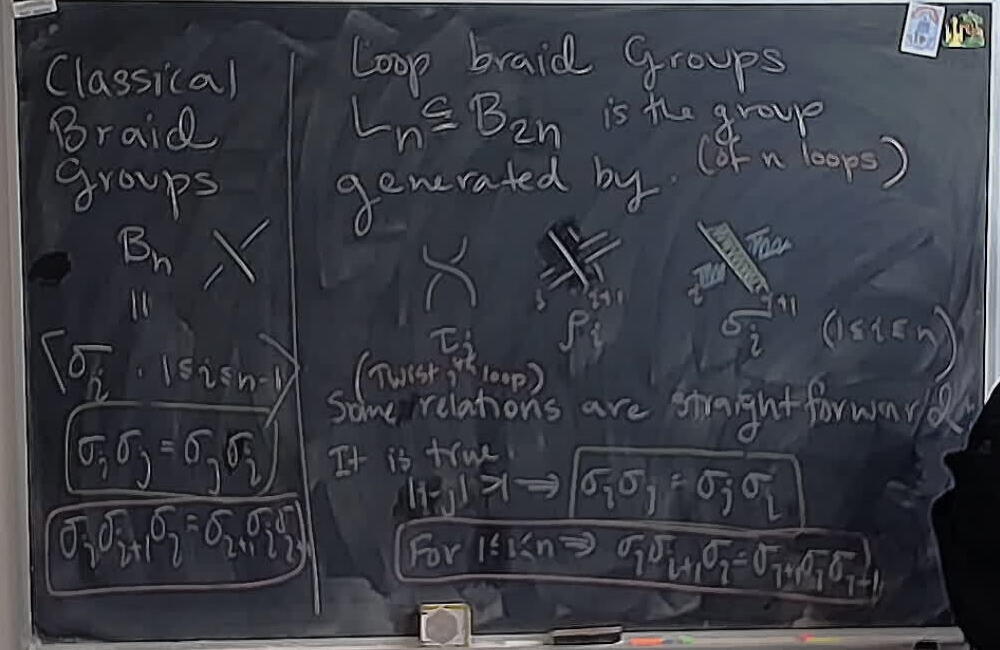 Classical
Braid
Groups
Bₙ
||
⟨σᵢ · 1≤i≤n-1⟩
σᵢσⱼ = σⱼσᵢ
σᵢσᵢ₊₁σᵢ = σᵢ₊₁σᵢσᵢ₊₁
Loop braid Groups
Lₙ ⊆ B₂ₙ is the group
generated by. (of n loops)
i i+1 i i+1
τⱼ ρᵢ σᵢ (1≤i≤n)
(Twist jth loop)
Some relations are straightforward
It is true.
|i-j|>1 ⇒ σᵢσⱼ = σⱼσᵢ
For 1≤i≤n ⇒ σᵢσᵢ₊₁σᵢ = σᵢ₊₁σᵢσᵢ₊₁